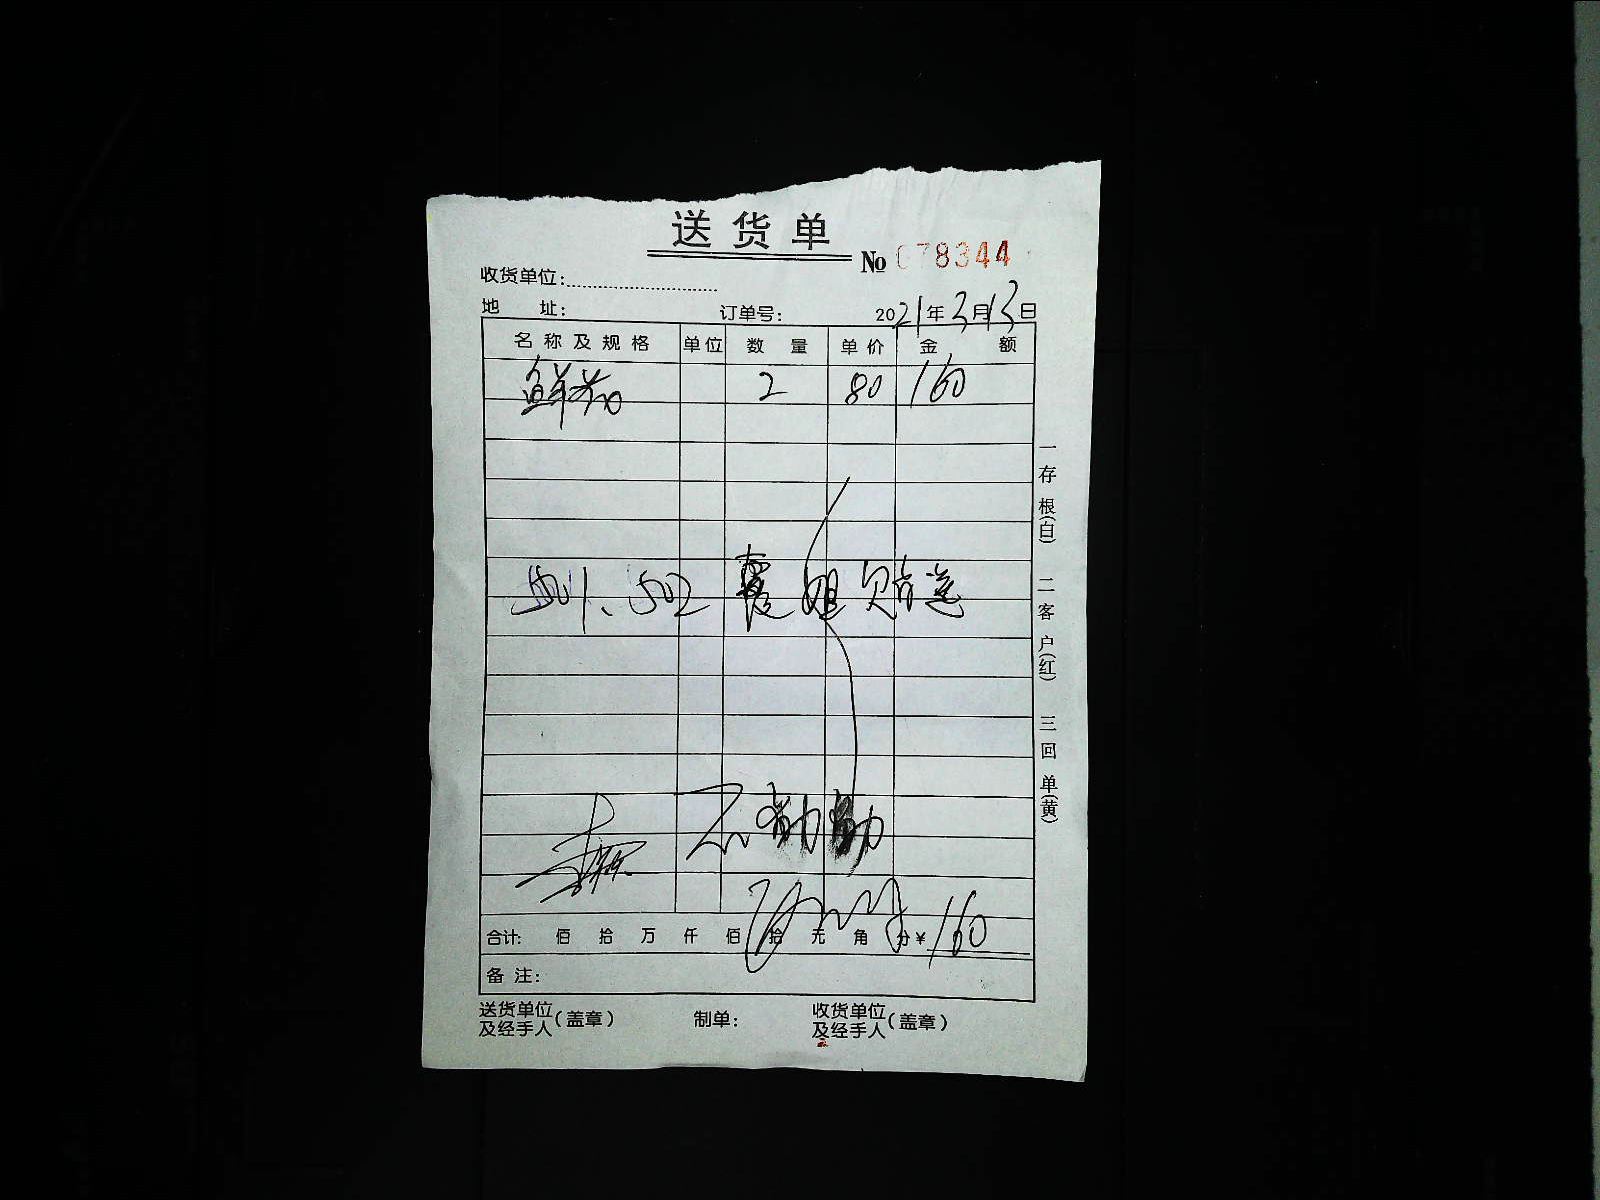 送货单
No 078344
收货单位:
地 址: 订单号: 2021年3月13日
名称及规格 单位 数量 单价 金额
鲜花 2 80 160
501、502 霞姐 赠送
合计: 佰 拾 万 仟 佰 拾 元 角 分 ¥160
备注:
送货单位及经手人(盖章) 制单: 收货单位及经手人(盖章)
一存根(白) 二客户(红) 三回单(黄)